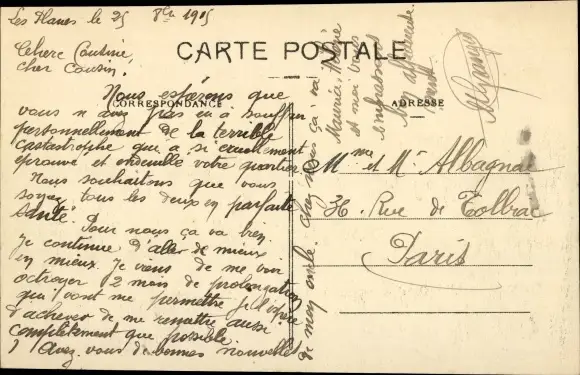 Les Hanes le 25 8bre 1915
CARTE POSTALE
Chère Cousine,
cher Cousin,
CORRESPONDANCE
ADRESSE
Nous espérons que
vous n'avez pas eu à souffrir
personnellement de la terrible
castastrophe qui a si cruellement
éprouvé et endeuillé votre quartier
Nous souhaitons que vous
soyez tous les deux en parfaite
santé.
Pour nous ça va bien.
Je continue d'aller de mieux
en mieux. Je viens de me voir
octroyer 2 mois de prolongation
qui vont me permettre je l'espère
d'achever de me remettre aussi
complètement que possible
Avez vous de bonnes nouvelles
de mon oncle. Chez nous ça va
Maurice, Hélène
et moi vous
embrassons
Mme et Mr Albagnac
36. Rue de Tolbiac
Paris